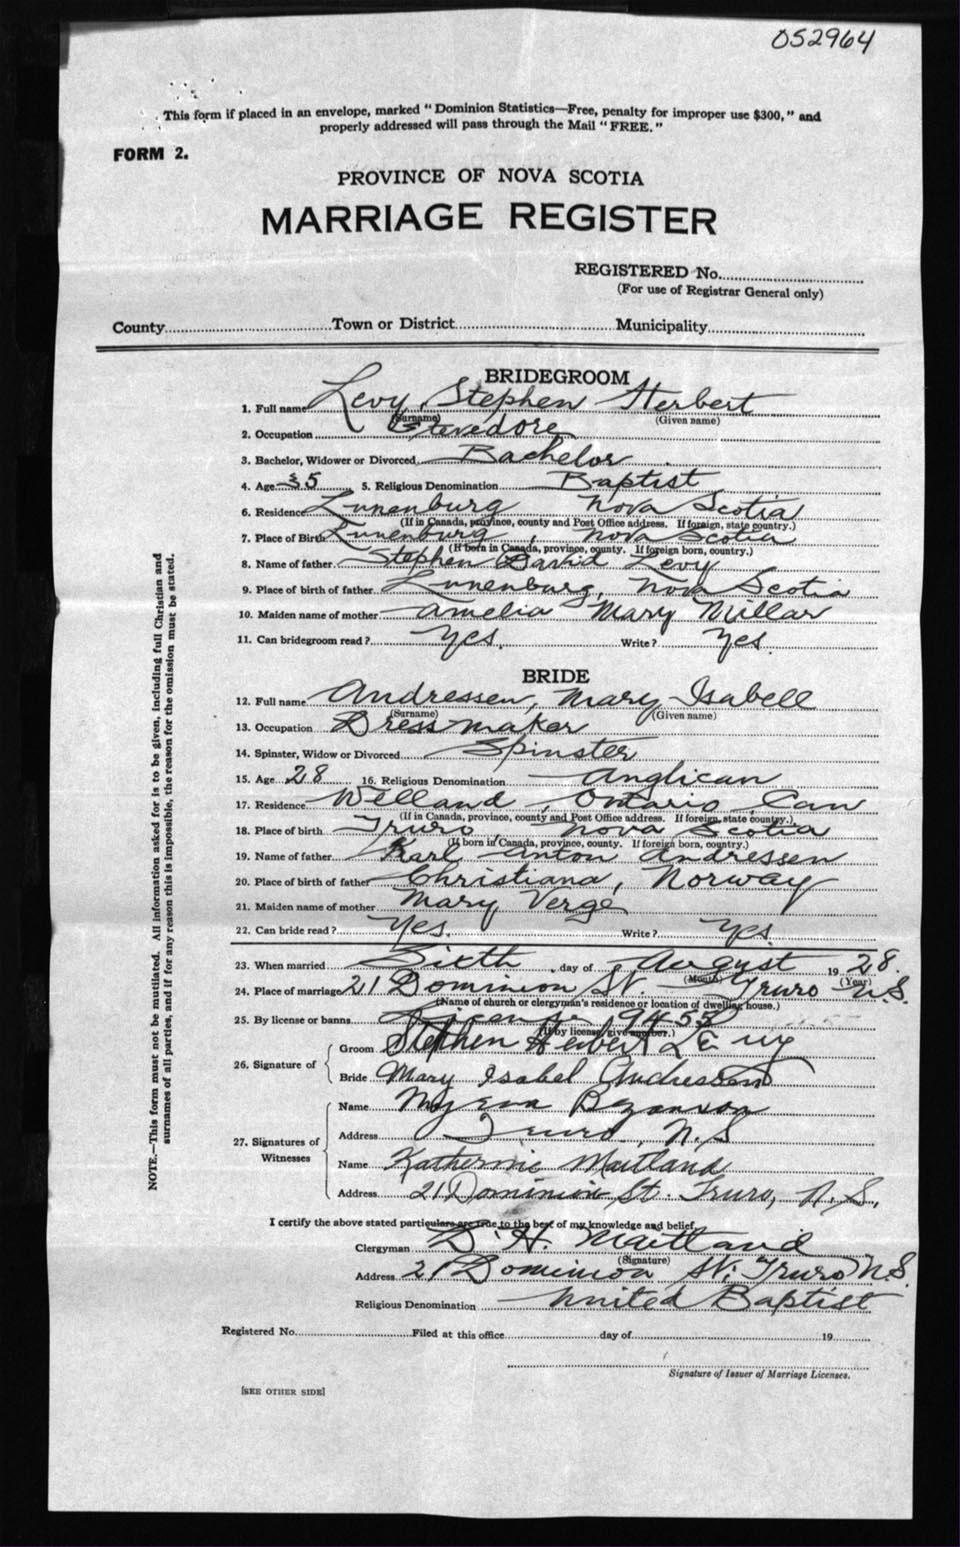 052964
This form if placed in an envelope, marked "Dominion Statistics—Free, penalty for improper use $300," and
properly addressed will pass through the Mail "FREE."
FORM 2.
PROVINCE OF NOVA SCOTIA
MARRIAGE REGISTER
REGISTERED No.
(For use of Registrar General only)
County Town or District Municipality
BRIDEGROOM
1. Full name Levy, Stephen Herbert
(Surname) (Given name)
2. Occupation Stevedore
3. Bachelor, Widower or Divorced Bachelor
4. Age 35 5. Religious Denomination Baptist
6. Residence Lunenburg Nova Scotia
(If in Canada, province, county and Post Office address. If foreign, state country.)
7. Place of Birth Lunenburg, Nova Scotia
(If born in Canada, province, county. If foreign born, country.)
8. Name of father Stephen David Levy
9. Place of birth of father Lunenburg, Nova Scotia
10. Maiden name of mother Amelia Mary Millar
11. Can bridegroom read? Yes. Write? Yes.
BRIDE
12. Full name Andressen, Mary Isabell
(Surname) (Given name)
13. Occupation Dress maker
14. Spinster, Widow or Divorced Spinster
15. Age 28 16. Religious Denomination Anglican
17. Residence Welland, Ontario Can
(If in Canada, province, county and Post Office address. If foreign, state country.)
18. Place of birth Truro, Nova Scotia
(If born in Canada, province, county. If foreign born, country.)
19. Name of father Karl Anton Andressen
20. Place of birth of father Christiana, Norway
21. Maiden name of mother Mary Verge
22. Can bride read? Yes. Write? Yes.
23. When married Sixth day of August 19 28.
(Month) (Year)
24. Place of marriage 21 Dominion St. Truro N.S.
(Name of church or clergyman's residence or location of dwelling house.)
25. By license or banns License 9455
(If by license, give number.)
26. Signature of
Groom Stephen Herbert Levy
Bride Mary Isabel Andressen
27. Signatures of Witnesses
Name Bezanson
Address Truro, N.S
Name Katherine Maitland
Address 21 Dominion St. Truro, N.S.
I certify the above stated particulars are true to the best of my knowledge and belief.
Clergyman D. H. Maitland
(Signature)
Address 21 Dominion St; Truro N.S.
Religious Denomination United Baptist
Registered No. Filed at this office day of 19
Signature of Issuer of Marriage Licenses.
[SEE OTHER SIDE]
NOTE.—This form must not be mutilated. All information asked for is to be given, including full Christian and
surnames of all parties, and if for any reason this is impossible, the reason for the omission must be stated.